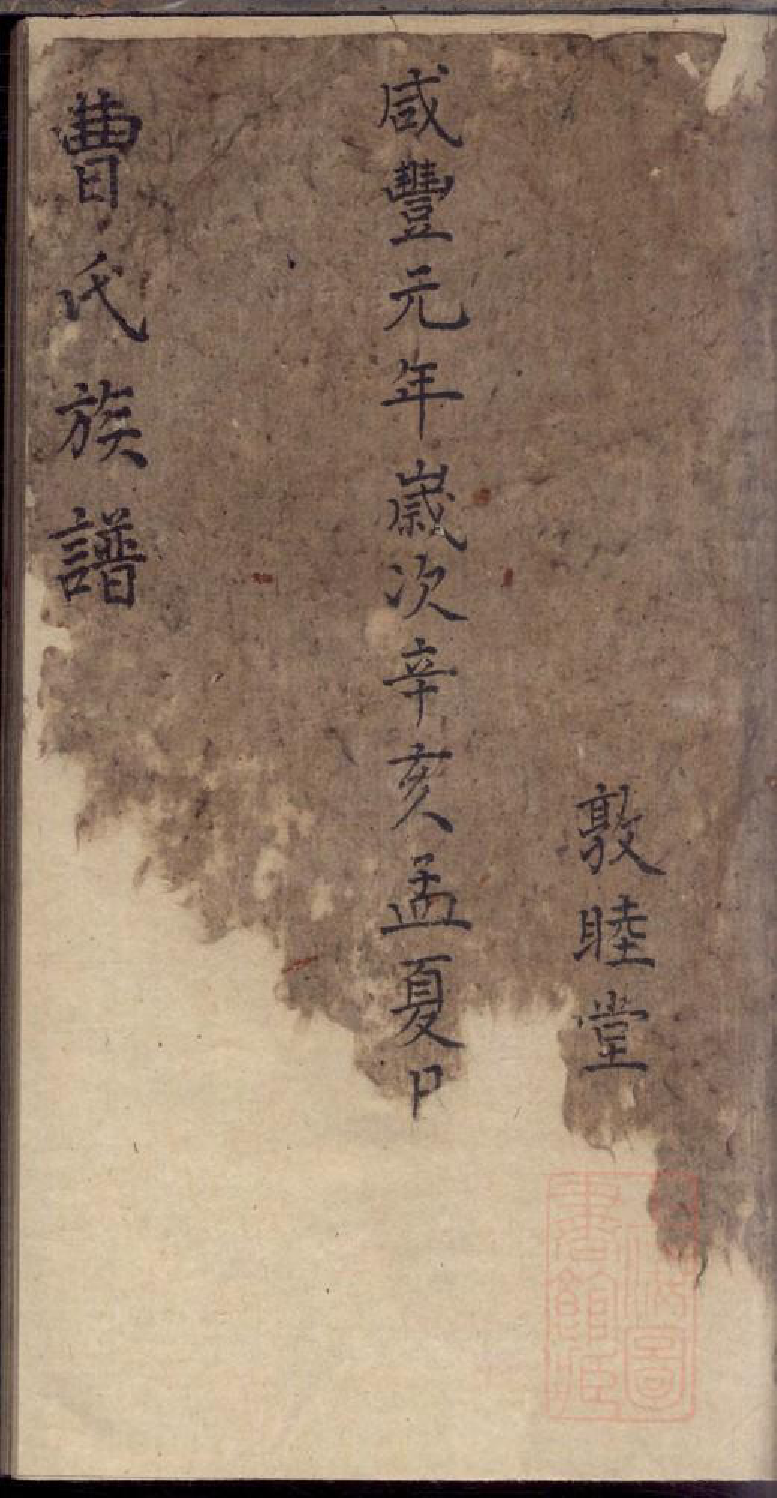 敦睦堂
咸豐元年歲次辛亥孟夏
曹氏族譜
上海圖書館藏